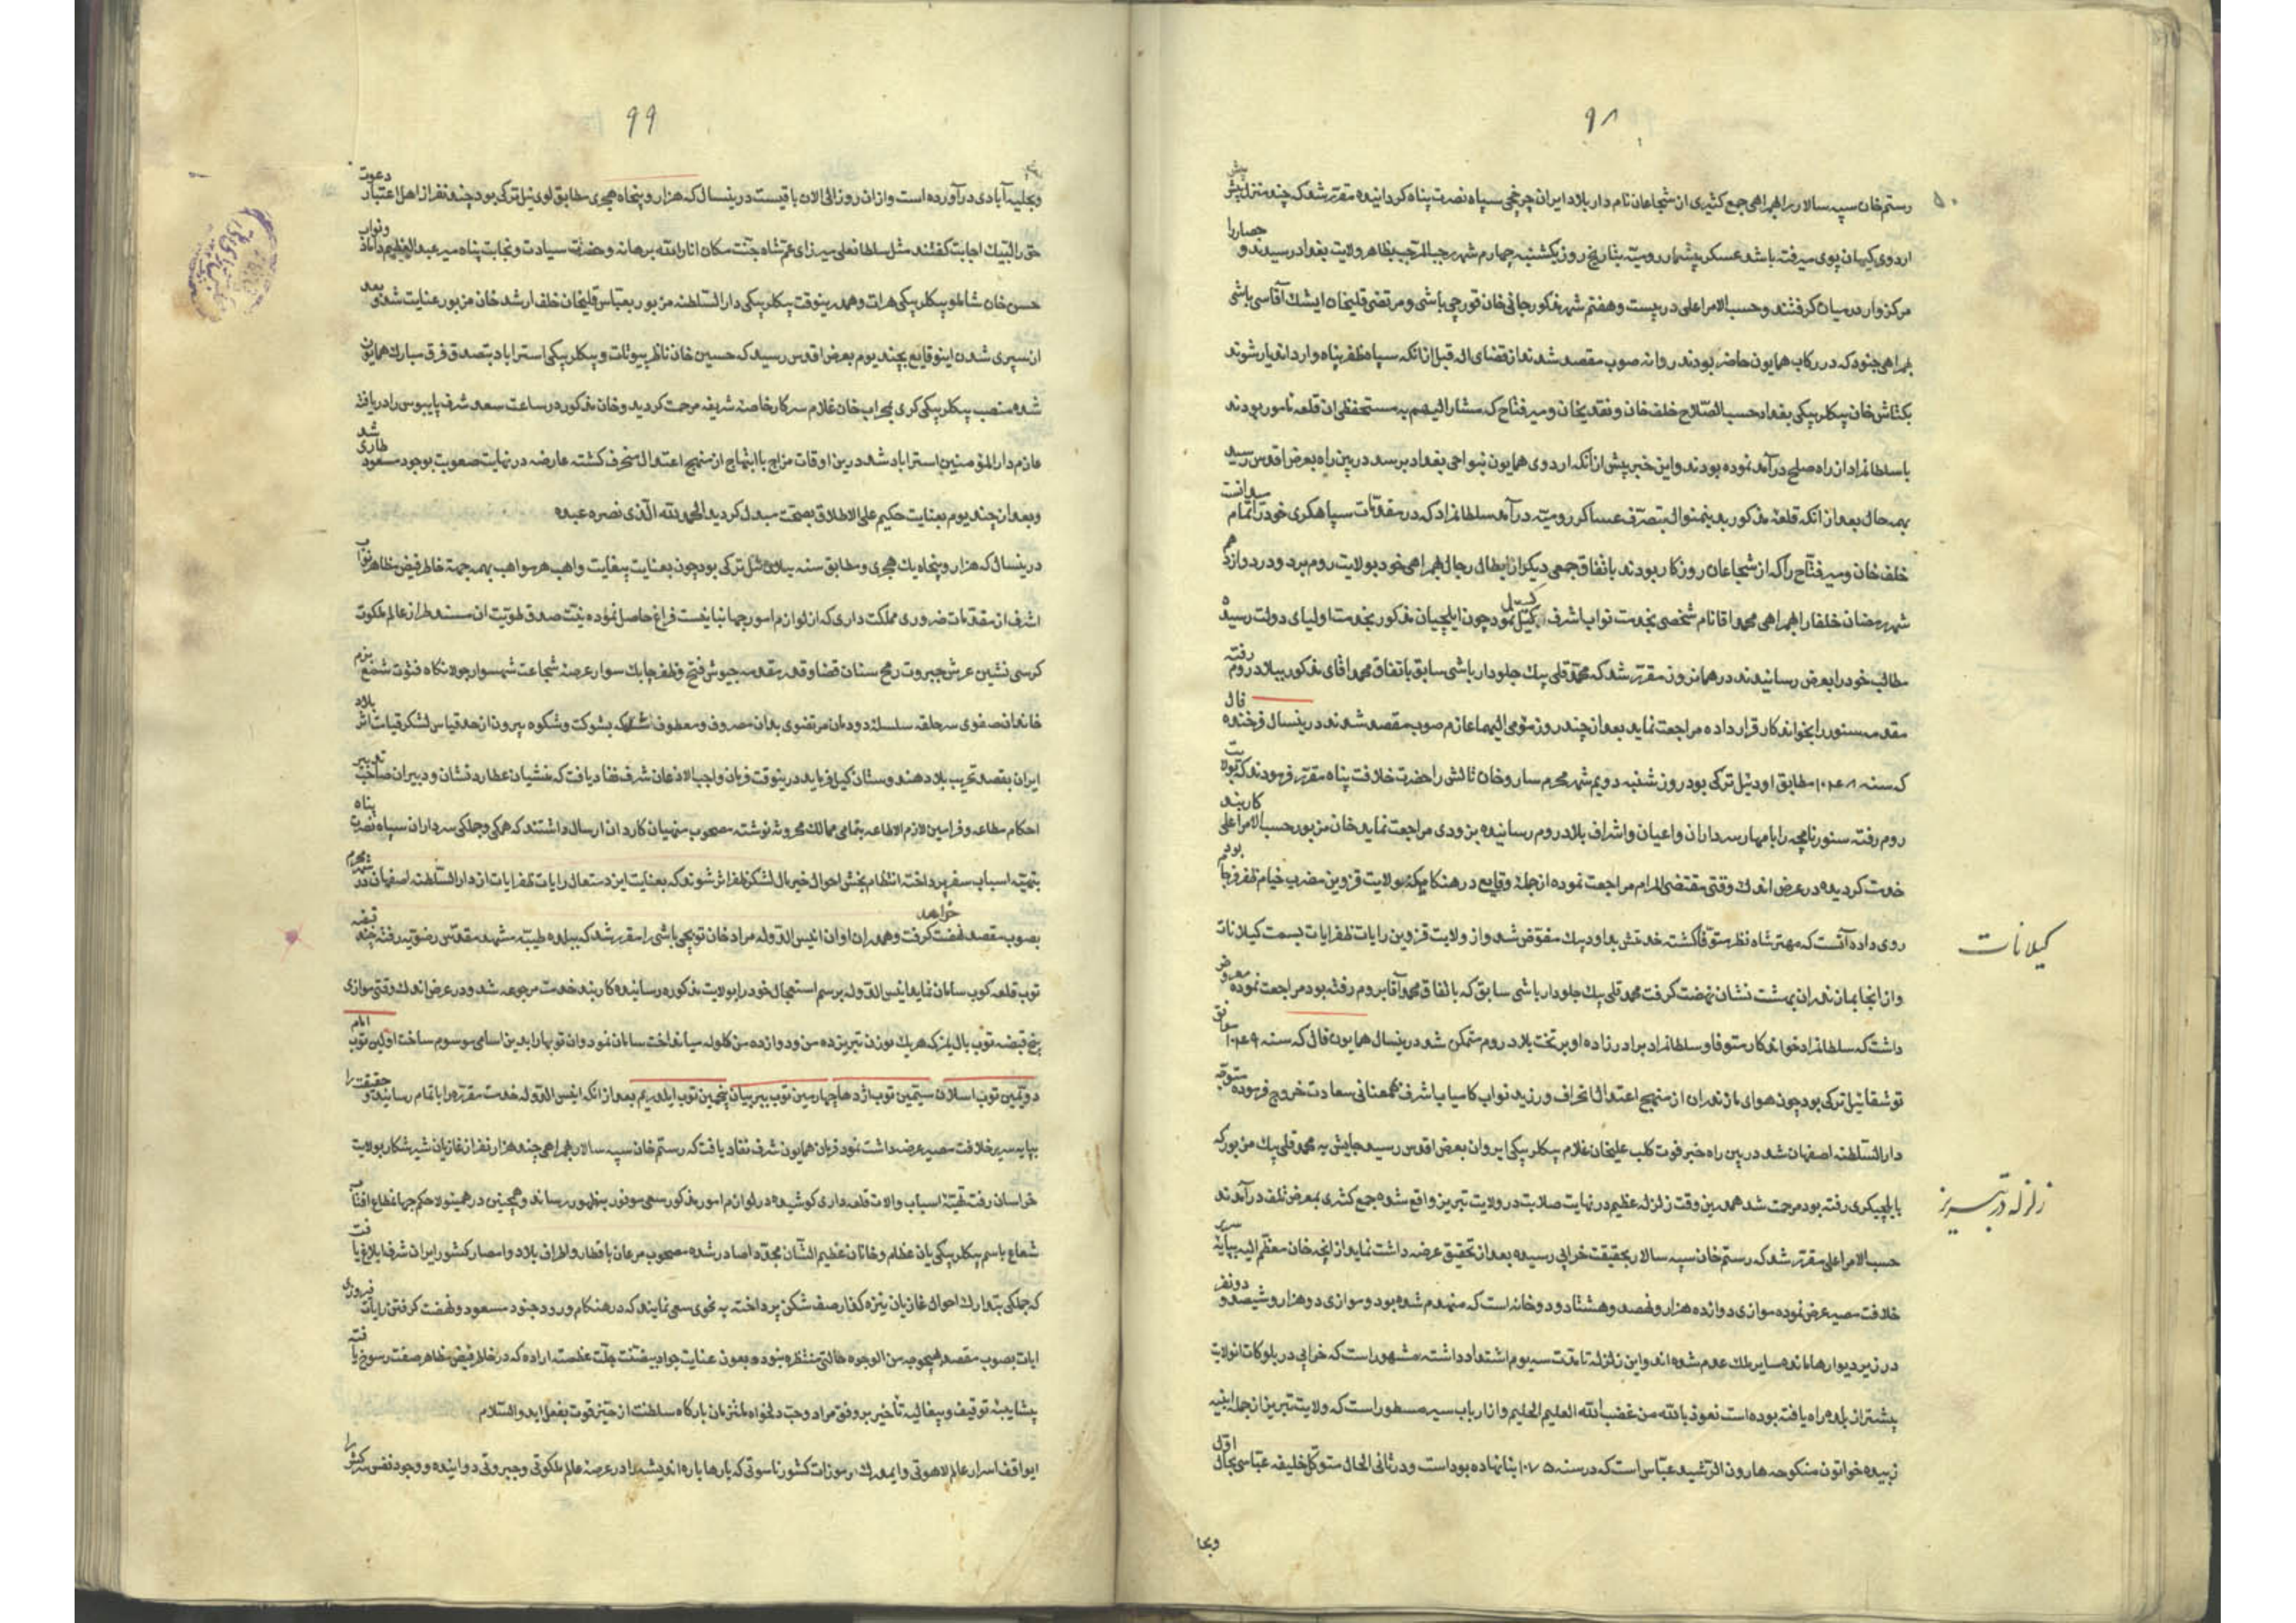 ۹۸
رستم خان سپه سالار را بهمراهی جمع کثیری از شجاعان نام دار بلاد ایران چرخچی سپاه نصرت پناه کردانیده مقرر شد که چند منزل پیش پیش
اردوی کیهان پوی میرفته باشد عسکر بیشمار رومیه بتاریخ روز یکشنبه چهارم شهر رجب المرجب بظاهر ولایت بغداد رسیدند و حصار را
مرکزوار در میان کرفتند و حسب الامر اعلی در بیست و هفتم شهر مذکور جانی خان قورچی باشی و مرتضی قلیخان ایشک آقاسی باشی
بهمراهی جنود که در رکاب همایون حاضر بودند روانه صوب مقصد شدند از قضای اله قبل از انکه سپاه ظفر پناه وارد اندیار شوند
بکتاش خان بیکلر بیکی بغداد حسب الصلاح خلف خان و نقد یخان و میر فتاح که مشار الیهم به مستحفظی ان قلعه مامور بودند
با سلطانمراد از راه صلح در آمد نموده بودند و این خبر پیش از آنکه اردوی همایون بنواحی بغداد برسد در بین راه بعرض اقدس رسید
بهمه حال بعد از انکه قلعهٔ مذکور بدینمنوال بتصرف عساکر رومیه در آمد سلطانمراد که در مقدمات سپاهکری خود را تمام میدانست
خلف خان و میر فتاح را که از شجاعان روزکار بودند باتفاق جمعی دیکر از ابطال رجال بهمراهی خود بولایت روم برد و در دوازدهم
شهر رمضان خلفا را بهمراهی محمد اقا نام شخصی بخدمت نواب اشرف کسیل نمود چون ایلچیان مذکور بخدمت اولیای دولت رسیده
مطالب خود را بعرض رسانیدند در همانروز مقرر شد که محمد قلی بیک جلودار باشی سابق باتفاق محمد اقای مذکور ببلاد روم رفته
مقدمه سنور را بخواندکار قرار داده مراجعت نماید بعد از چند روز مومی الیهما عازم صوب مقصد شدند درینسال فرخنده فال
که سنه ۱۰۴۸ مطابق اودئیل ترکی بود روز شنبه دویم شهر محرم ساروخان تالش را حضرت خلافت پناه مقرر فرمودند که بولایت
روم رفته سنورنامچه را بامهار سرداران و اعیان و اشراف بلاد روم رسانیده بزودی مراجعت نماید خان مزبور حسب الامر اعلی کاربند
خدمت کردیده در عرض اندک وقتی مقتضی المرام مراجعت نموده از جمله وقایع در هنکامیکه بولایت قزوین مضرب خیام ظفر فرجام بود
روی داده آنست که مهتر شاه نظر متوفا کشته خدمتش بداود بیک مفوض شد و از ولایت قزوین رایات ظفرایات بسمت کیلانات
کیلانات
و از انجا بمازندران بهشت نشان نهضت کرفت محمد قلی بیک جلودار باشی سابق که باتفاق محمد آقا بروم رفته بود مراجعت نموده معروض
داشت که سلطانمراد خواندکار متوفا و سلطانمراد برادر زاده او بر تخت بلاد روم متمکن شد درینسال همایون فال که سنه ۱۰۴۹ موافق
توشقانئیل ترکی بود چون هوای مازندران از منهج اعتدال انحراف ورزید نواب کامیاب اشرف همعنانی سعادت خروج فرموده متوجه
دارالسلطنه اصفهان شد در بین راه خبر فوت کلب علیخان غلام بیکلر بیکی ایروان بعرض اقدس رسید جایش به محمد قلی بیک مزبور که
بایلچیکری رفته بود مرحمت شد همدرین وقت زلزله عظیم در نهایت صلابت در ولایت تبریز واقع شده جمع کثیری بمعرض تلف در آمدند
زلزله در تبریز
حسب الامر اعلی مقرر شد که رستم خان سپه سالار بحقیقت خرابی رسیده بعد از تحقیق عرضه داشت نماید از انچه خان معظم الیه بپایه سریر
خلافت مصیر عرض نموده موازی دوازده هزار و نهصد و هشتاد و دو خانه است که منهدم شده بود و موازی دو هزار و ششصد و دو نفر
در زیر دیوارها مانده مسایر ملک عدم شده اند و این زلزله تا مدت سه یوم اشتداد داشته مشهور است که خرابی در بلوکات انولایت
بیشتر از بلده راه یافته بوده است نعوذ بالله من غضب الله العلیم الحلیم و از ارباب سیر مسطور است که ولایت تبریز از جمله ابنیه
زبیده خواتون منکوحه هارون الرشید عباس است که در سنه ۱۰۷۵ بنا نهاده بود است و در ثانی الحال متوکل خلیفه عباسی بحال اول
وبحا
۹۹
وبحلیه آبادی در آورده است و از ان روز الی الان باقیست درینسال که هزار و پنجاه هجری مطابق لوی ئیل ترکی بود چند نفر از اهل اعتبار دعوت
حق را لبیک اجابت کفتند مثل سلطانعلی میرزای عم شاه جنت مکان انار الله برهانه و حضرت سیادت و نجابت پناه میر عبد العظیم داماد و نواب
حسن خان شاملو بیکلر بیکی هرات و همدرینوقت بیکلر بیکی دارالسلطنه مزبور بعباس قلیخان خلف ارشد خان مزبور عنایت شد و بعد
از سپری شدن اینوقایع بچند یوم بعرض اقدس رسید که حسین خان ناظر بیوتات و بیکلر بیکی استراباد بتصدق فرق مبارک همایون
شده منصب بیکلر بیکی کری بمحراب خان غلام سرکار خاصه شریفه مرحمت کردید و خان مذکور در ساعت سعد شرف پایبوس را دریافته
عازم دارالمؤمنین استراباد شد درین اوقات مزاج با ابتهاج از منهج اعتدال منحرف کشته عارضه در نهایت صعوبت بوجود مسعود طاری شد
و بعد از چند یوم بعنایت حکیم علی الاطلاق بصحت مبدل کردید الحمد لله الذی نصره عبده
درینسال که هزار و پنجاه یک هجری و مطابق سنه ییلان ئیل ترکی بود چون بعنایت بیغایت واهب هر مواهب بهمه جهة خاطر فیض مظاهر نواب
اشرف از مقدمات ضروری مملکت داری که از لوازم امور جهانبانیست فراغ حاصل نموده نیت صدق طویت ان مسند طراز عالم ملکوت
کرسی نشین عرش جبروت رمح سنان قضا و قدر مقدمه جیوش فتح و ظفر چابک سوار عرصه شجاعت شهسوار جولانکاه فتوت شمع بزم
خاندان صفوی سر حلقه سلسله دودمان مرتضوی بدان مصروف و معطوف شد که بشوکت و شکوه بیرون از حد قیاس لشکر قیامت اثر بلاد
ایران بقصد تخریب بلاد هندوستان کسل فرماید درینوقت فرمان واجب الاذعان شرف نفاذ یافت که منشیان عطارد نشان و دبیران صاحب تدبیر
احکام مطاعه و فرامین لازم الاطاعه بتمامی ممالک محروسه نوشته مصحوب منهیان کاردان ارسال داشتند که همکی و جملکی سرداران سپاه نصرت پناه
بتهیه اسباب سفر پرداخته انتظام بخش احوال خیر مال لشکر ظفر اثر شوند که بعنایت ایزد متعال رایات ظفرایات از دارالسلطنه اصفهان در شهر محرم
بصوب مقصد نهضت خواهد کرفت و همدران اوان انیس الدوله مراد خان توپچی باشی را مقرر شد که ببلده طیبه مشهد مقدس رضویه رفته چند قبضه
توپ قلعه کوب سامان نماید انیس الدوله برسم استعجال خود را بولایت مذکوره رسانیده کاربند خدمت مرجوعه شد و در عرض اندک وقتی موازی
پنج قبضه توپ بالیمز که هر یک بوزن تبریز ده من و دوازده من کلوله میانداخت سامان نمود و ان توپها را بدین اسامی موسوم ساخت اولین توپ امام
دویمین توپ اسلان سیمین توپ اژدها چهارمین توپ ببر بیان پنجمین توپ ایلدریم بعد از آنکه انیس الدوله خدمت مقرره را باتمام رسانید و حقیقت را
بپایه سریر خلافت مصیر عرضه داشت نمود فرمان همایون شرف نفاذ یافت که رستم خان سپه سالار بهمراهی چند هزار نفر از غازیان شیر شکار بولایت
خراسان رفته تهیهٔ اسباب و الات قلعه داری کوشیده در لوازم امور مذکور سعی موفور بظهور رساند و همچنین در همینولا حکم جهانمطاع افتاب
شعاع باسم بیکلر بیکی یان عظام و خانان عظیم الشان مجددا صادر شده مصحوب سرعان باقطار و اطراف بلاد و امصار کشور ایران شرف ابلاغ یافت
که جملکی بتدارک احوال غازیان نیزه کذار صف شکن پرداخته به نحوی سعی نمایند که در هنکام ورود جنود مسعود و نهضت کرفتن رایات فیروزی
ایات بصوب مقصد هیچوجه من الوجوه حالتی منتظره نبوده بعون عنایت جواد بیمنت جلت عظمته اراده که در خاطر فیض مظاهر صفت رسوخ یافته
بیشایبهٔ توقیف و بیغالیه تأخیر بر وفق مراد و حسب دلخواه ملتزمان بارکاه سلطنت از حیز قوت بفعل اید والسلام
ایواقف اسرار عالم لاهوتی و ایمدرک رموزات کشور ناسوتی که بارها باره اندیشه را در عرصهٔ عالم ملکوتی و جبروتی دوانیده و وجود نفس سرکش را